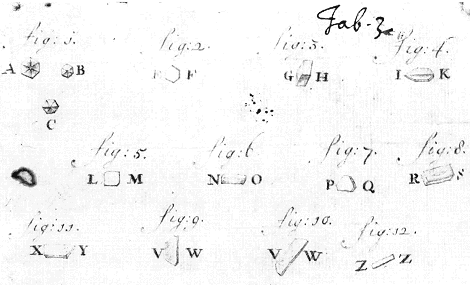 Tab. 3.
fig: 1. fig: 2. fig: 3. fig: 4.
A B F G H I K
C
fig: 5. fig: 6 fig: 7. fig: 8.
L M N O P Q R S
fig: 11. fig: 9. fig: 10. fig: 12.
X Y V W V W Z Z